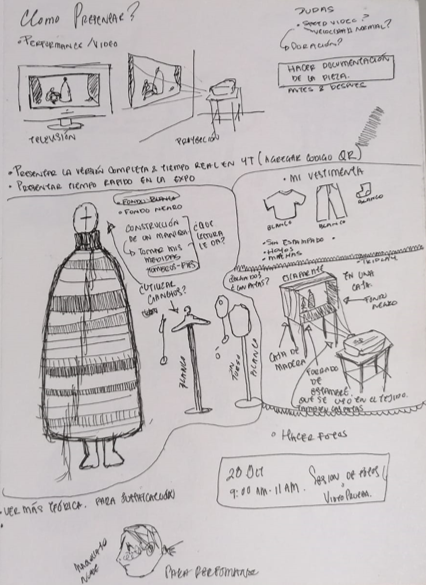 ¿Como Presentar?
• Performance/Video
Televisión
Proyección
Dudas
• Speed video?
Velocidad normal?
• Duración?
Hacer documentación
de la pieza.
Antes & Después
• Presentar la versión completa & tiempo real en YT (Agregar codigo QR)
• Presentar tiempo rapido en la expo
• Fondo Blanco
• Fondo Negro
Construcción
de un maniquí
→ Tomar mis
medidas
¿Que
lectura
le da?
¿Utilizar
ganchos?
Blanco
Blanco
• Mi vestimenta
Blanco
Blanco
Blanco
• Sin estampado
• Hoyos
• Manchas
En una
caja.
Fondo
negro
Caja de
madera
Forrado
de
estambre
que se usó en el tejido.
• Hacer fotos
20 Oct
9:00 AM - 11 AM.
Sesion de fotos
&
Video Prueba.
• Ver más teórica. Para justificación
Maquillaje
Para performance